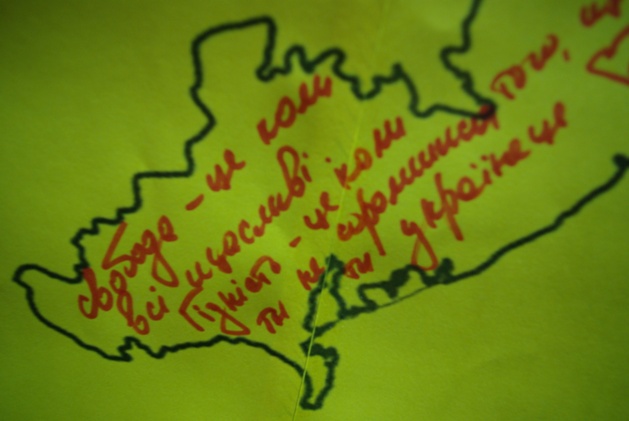 свобода - це коли
всі щасливі.
Гідність - це коли
ти не соромишся того, що
ти українець